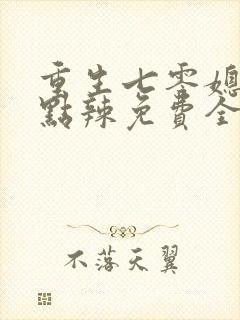 重生七零媳
點辣免費全
不落天翼